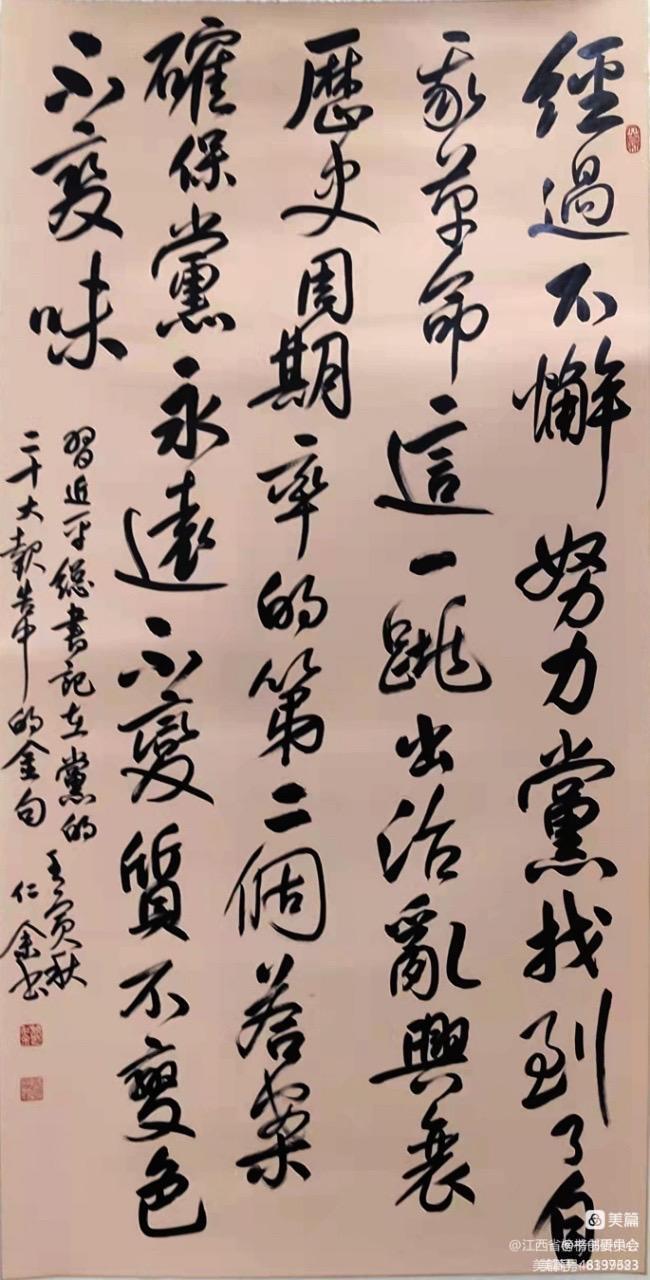 經過不懈努力黨找到了自
我革命這一跳出治亂興衰
歷史周期率的第二個答案
確保黨永遠不變質不變色
不變味
習近平總書記在黨的
二十大報告中的金句
壬寅秋
仁余书
美篇
@江西省